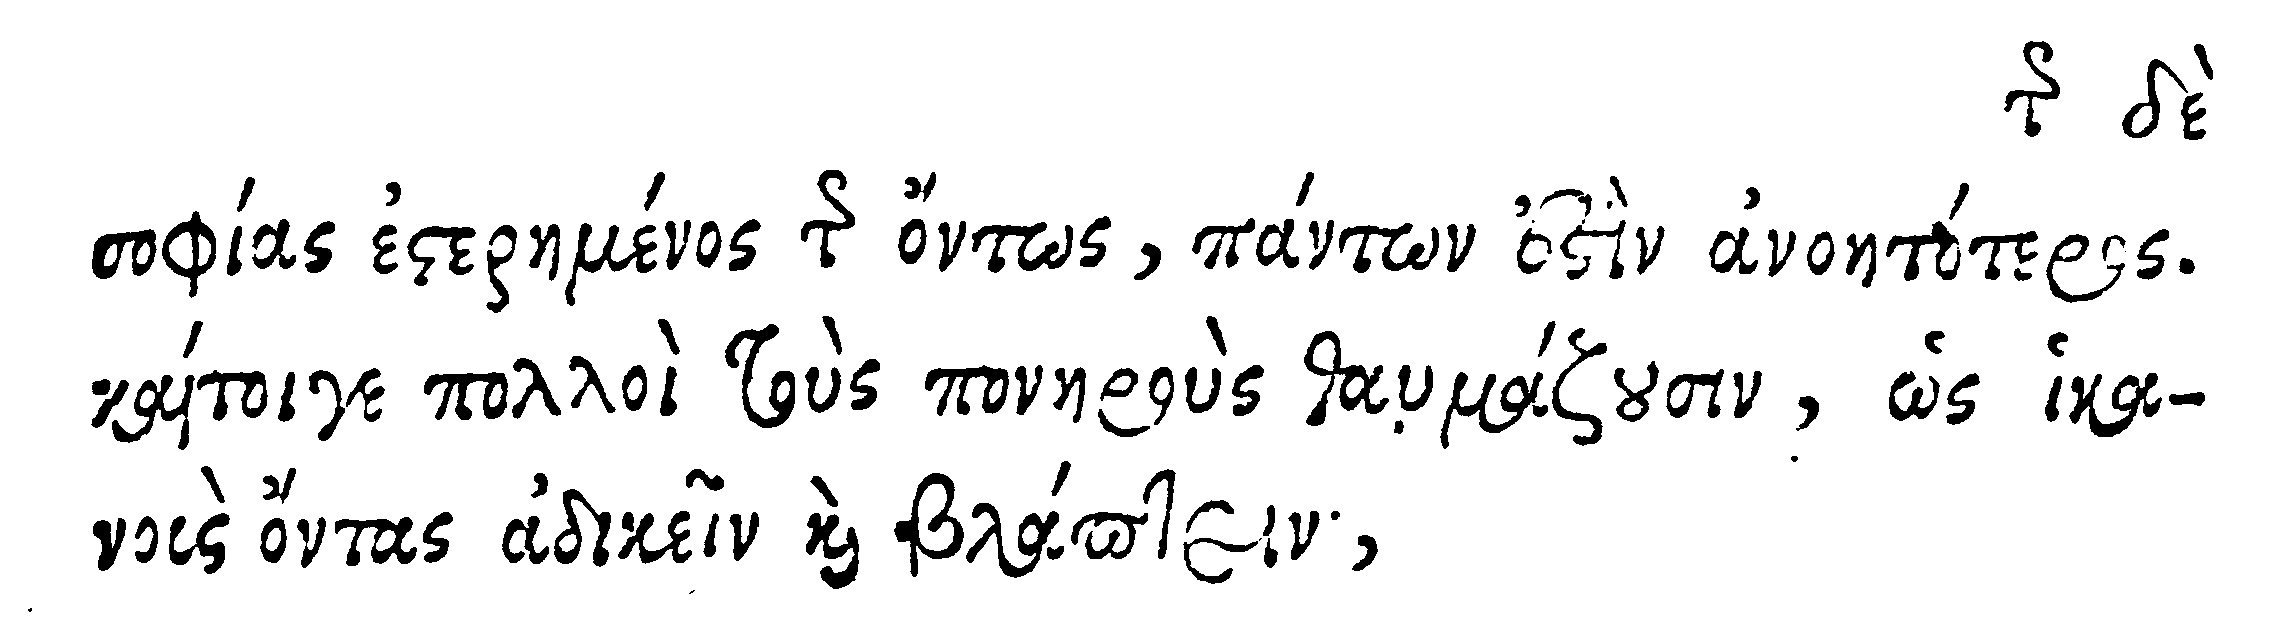 τῆς δὲ
σοφίας ἐστερημένος τῆς ὄντως, πάντων ἐστὶν ἀνοητότερος.
καίτοιγε πολλοὶ τοὺς πονηροὺς θαυμάζουσιν, ὡς ἱκα-
νοὶς ὄντας ἀδικεῖν καὶ βλάπτειν,